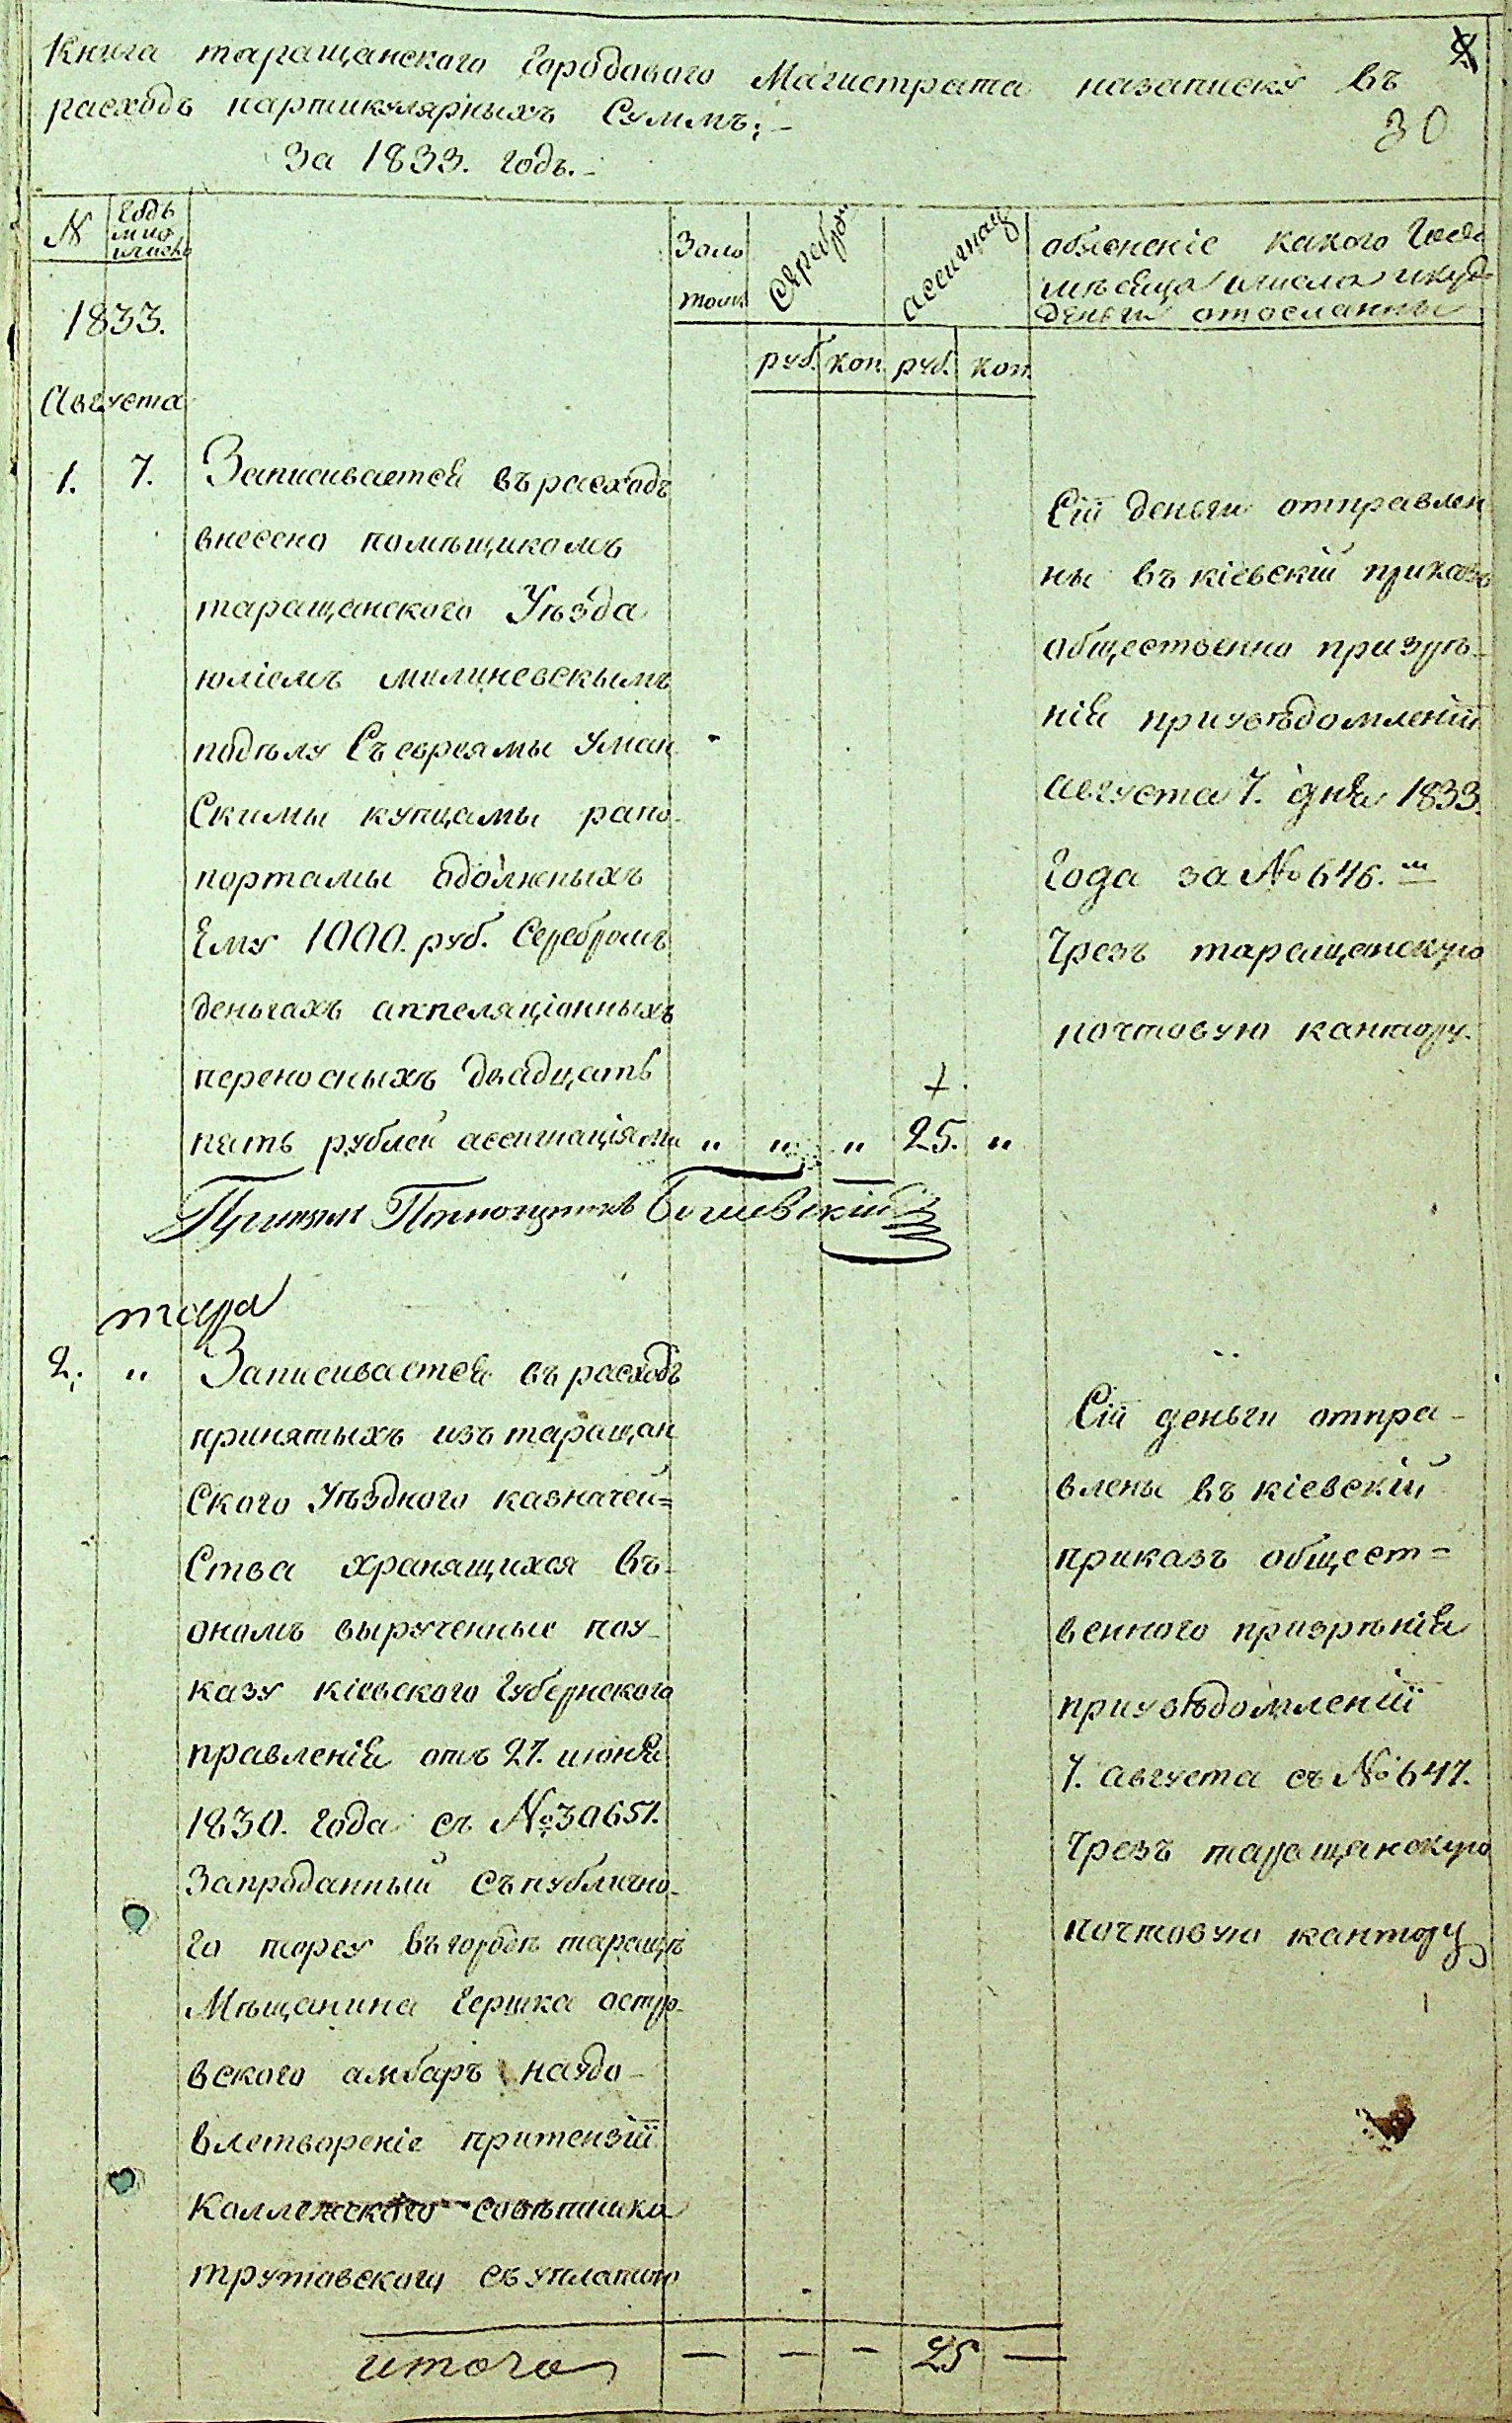 Книга таращанского Городового Магистрата назаписку въ
расходъ партикулярныхъ Суммъ;-
30
За 1833. годъ.-
N
Годъ
м но
число
Золо
том
Серебром
ассигнац
обясненіе какого Года
мѣсяца числа икуда
деньги отосланны
1833.
руб. коп. руб. коп.
Августа
1. 7. Записивается въ расходъ
внесено помѣщикомъ
таращанского Уѣзда
юліемъ милиневскымъ
подѣлу Съ евреямы Уман
Скимы купцамы рапо-
портамы одолжныхъ
Ему 1000. руб. Серебромъ
деньгахъ аппеляціонныхъ
переносныхъ двадцать
пять рублей ассигнаціями „ „ „ 25. „
Сіи деньги отправлен
ны въ кіевскій приказъ
общественно призрѣ-
нія приувѣдомленіи
августа 7. дня 1833.
Года за № 646.
Чрезъ таращанскую
почтовую кантору.
тогда
2. „ Записивается въ расходъ
принятыхъ изъ таращан
Ского Уѣздного казначей=
Ства хранящихся въ-
ономъ вырученные поу-
казу кіевского Губернского
правленія отъ 27. июня
1830. Года съ № 30651.
Запроданный съ публично-
го торгу въ городѣ таращѣ
Мѣщанина Гершка остро-
вского амбаръ наудо-
влетвореніе притензіи
Коллежского совѣтника
трутовского съ уплатою
Сіи деньги отпра-
влены въ кіевскій
приказъ общест=
венного призрѣнія
приувѣдомленіи
7. августа съ № 647.
Чрезъ таращанскую
почтовую кантору
итого — — — 25 —